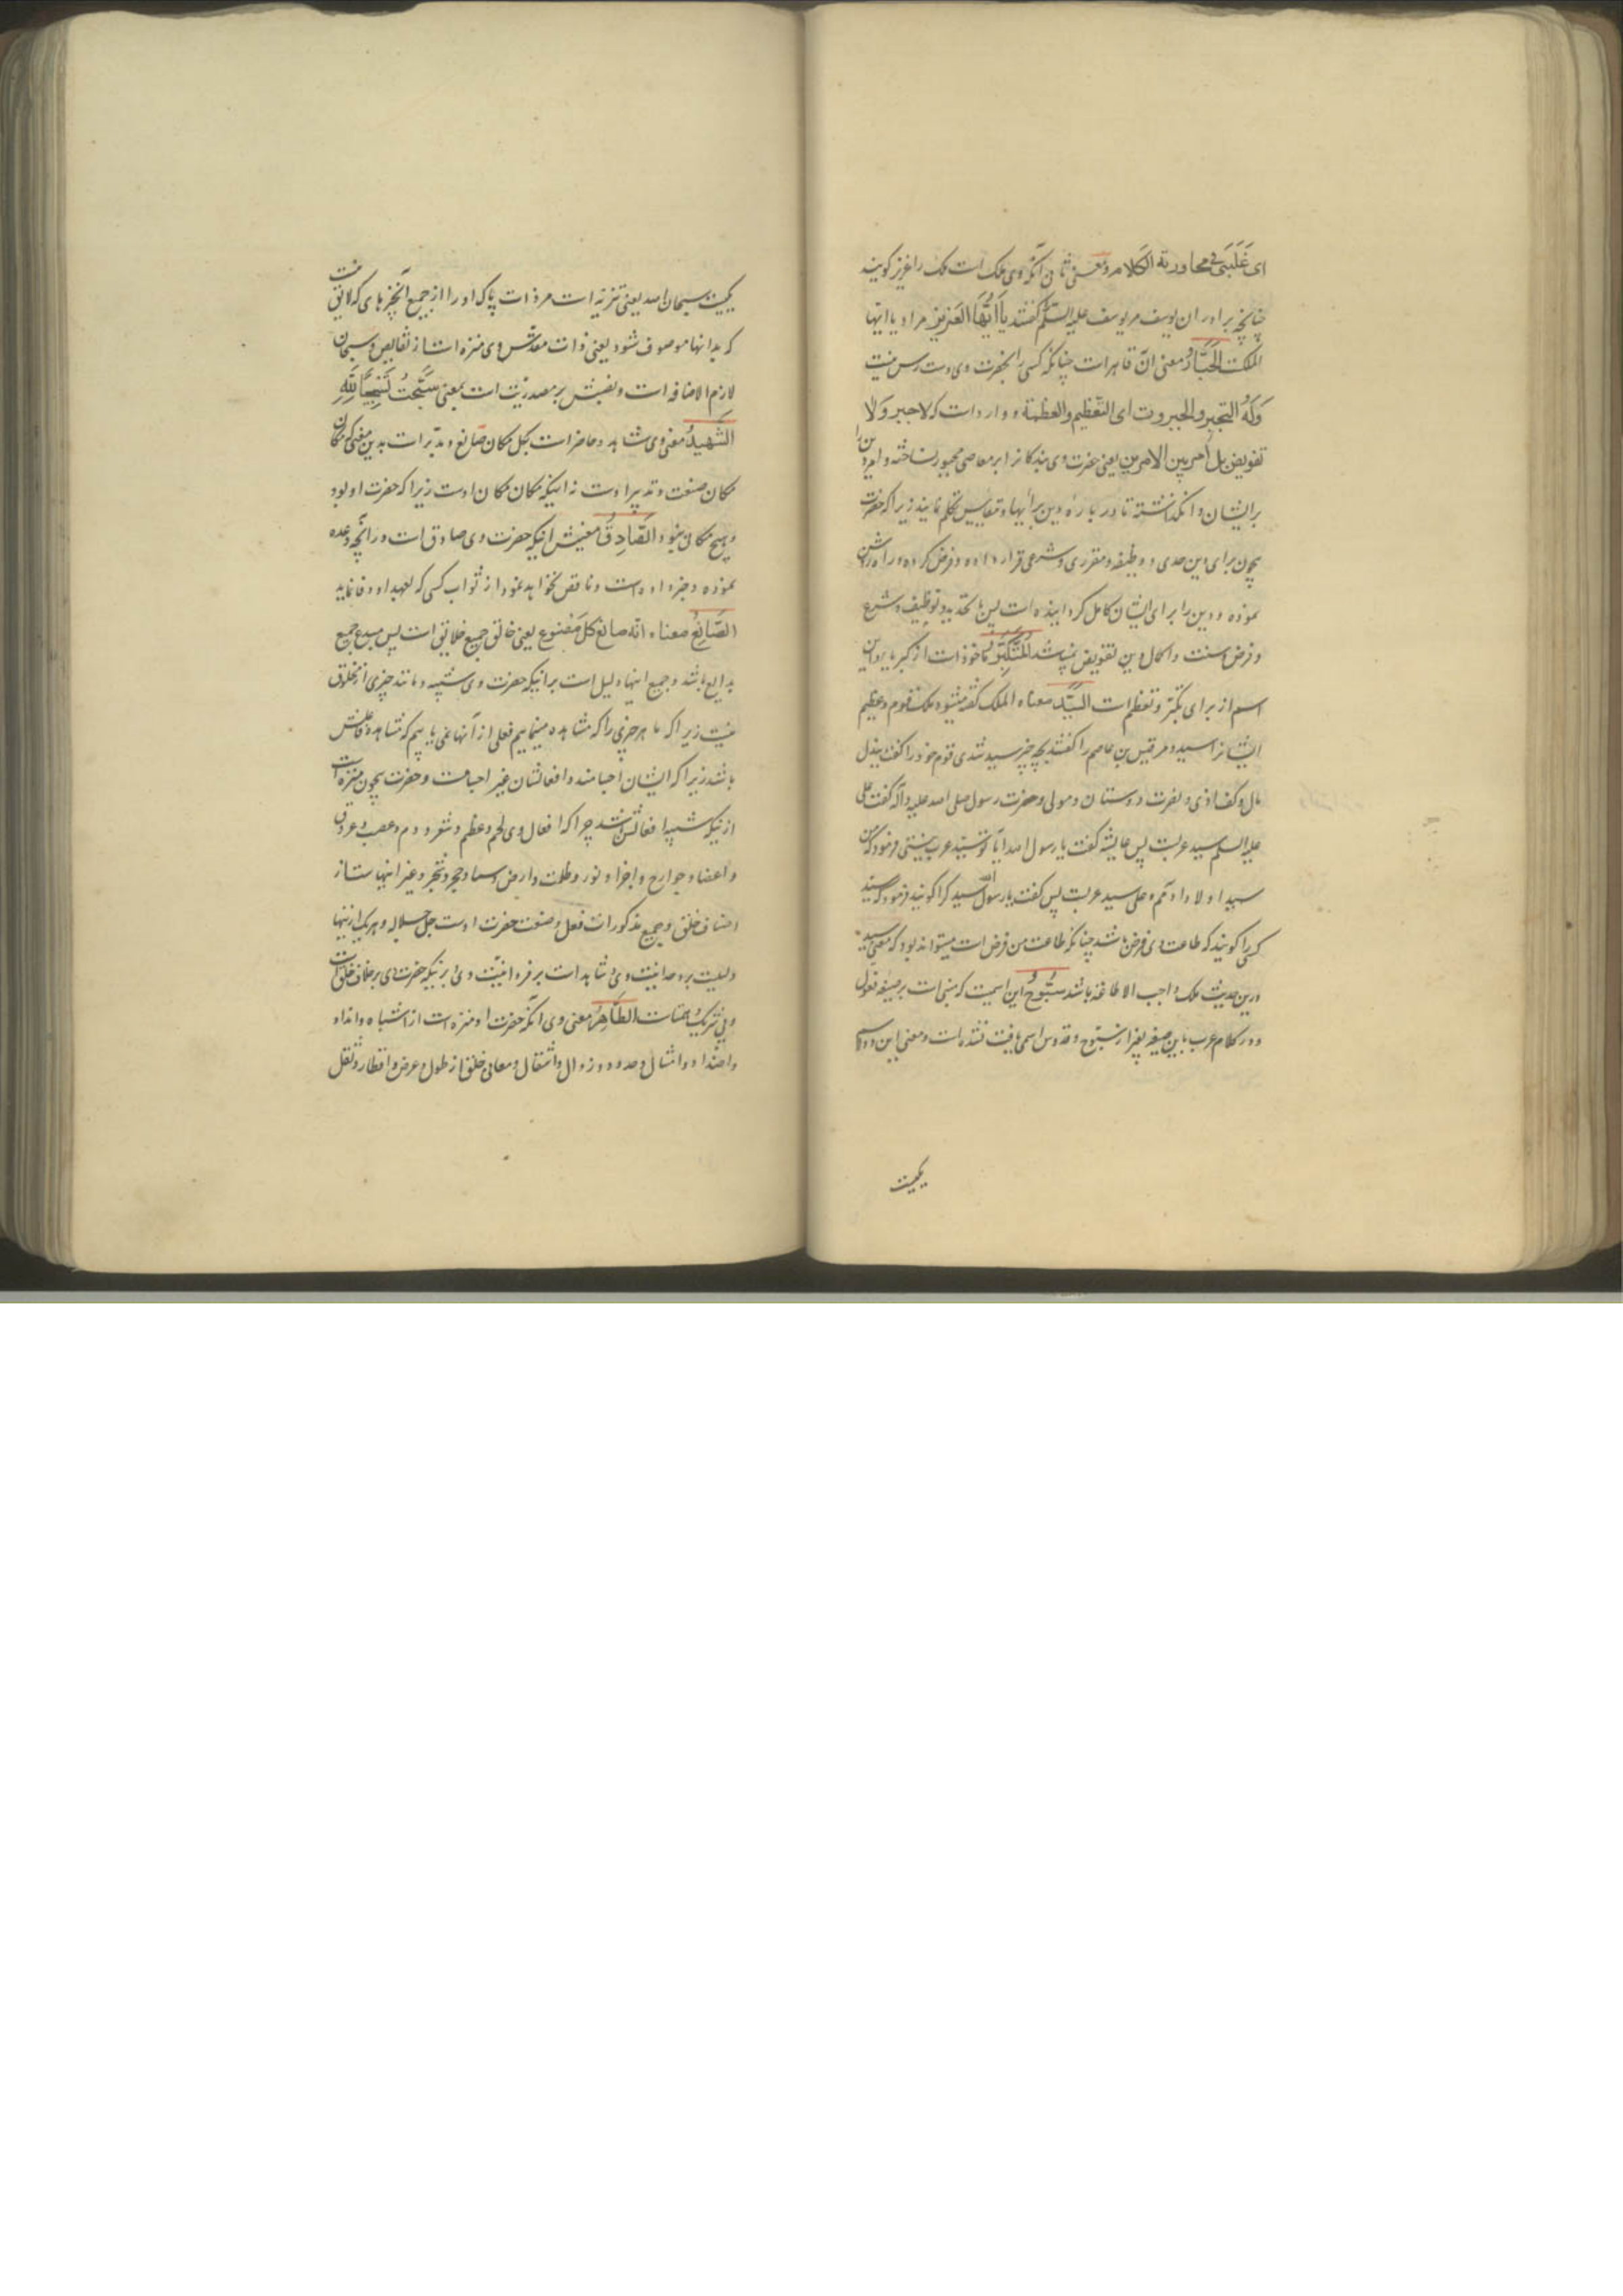 ای غَلَبَنی فی محاورة الکلام و معنی ثانی آنکه وی ملک است ملک را عزیز گویند
چنانچه برادران یوسف مر یوسف علیه السلم گفتند یا اَیُّهَا العَزیز مراد یا ایها
الملک الجَبّارُ معنی آن قاهر است چنانکه کسی را بحضرت وی دست رس نیست
وَلَهُ التجبر والجبروت ای التّعظیم والعظمة و وارد است که لا جبر وَلا
تفویض بل اَمر بین الامرین یعنی حضرت وی بندکانرا بر معاصی مجبور نساخته و امر دین را
بر ایشان وانگذاشته تا در باره دین برأیها و مقاییس تکلم نمایند زیرا که حضرت
بیچون برای دین حدی و وظیفه و مقرری و شرعی قرار داده و فرض کرده و راه روشن
نموده و دین را برای ایشان کامل کردانیده است پس با تحدید و توظیف و شرع
و فرض و سنت و اکمال دین تفویض نمیباشد المُتَکَبِّرُ ماخوذ است از کبریا و این
اسم از برای تکبّر و تعظم است السَّیِّدُ معناه الملک گفته میشود ملک قوم و عظیم
ایشانرا سید و مر قیس بن عاصم را گفتند بچه چیز سید شدی قوم خود را گفت ببذل
مال و کف اذی و نصرت دوستان و مولی و حضرت رسول صلی الله علیه و آله گفت علی
علیه السلم سید عربست پس عایشه گفت یا رسول الله آیا تو سیّد عرب نیستی فرمود که من
سید اولاد آدمم و علی سید عربست پس گفت یا رسول الله سید کرا گویند فرمود که سید
کسی را گویند که طاعت وی فرض باشد چنانکه طاعت من فرض است میتواند بود که معنی سید
درین حدیث ملک واجب الاطاعه باشد سُبُّوحُ این اسمیست که مبنی است بر صیغه فعول
و در کلام عرب باین صیغه بغیر از سبّوح و قدوس اسمی یافت نشده است و معنی این دو اسم
یکیست
یکیست سبحان الله یعنی تنزیه است مر ذات پاک او را از جمیع آنچیزهای که لایق نیست
که بدانها موصوف شود یعنی ذات مقدّس وی منزه است از نقایص و سبحان
لازم الاضافه است و نصبش بر مصدریّت است بمعنی سَبَّحتُ تَسْبیحًا لِلّهِ
الشَّهیدُ معنی وی شاهد و حاضر است بکل مکان صانع و مدبّر است بدین معنی که مکان
مکان صنعت و تدبیر اوست نه اینکه مکان مکان اوست زیرا که حضرت او بود
و هیچ مکان نبود الصّادِقُ معنیش اینکه حضرت وی صادق است در آنچه وعده
نموده و خبر داده است و ناقص نخواهد نمود از ثواب کسی که بعهد او وفا نماید
الصّانِعُ معناه انّه صانع کلّ مَصْنوع یعنی خالق جمیع خلایق است پس مبدع جمیع
بدایع باشد و جمیع اینها دلیل است بر اینکه حضرت وی شبیه و مانند چیزی از مخلوق
نیست زیرا که ما هر چیزی را که مشاهده مینماییم فعلی از آنها نمی یابیم که مشابه فاعلش
باشد زیرا که ایشان اجسامند و افعالشان غیر اجسامست و حضرت بیچون منزه است
از اینکه شبیه افعالش باشد چرا که افعال وی لحم و عظم و شعر و دم و عصب و عروق
و اعضا و جوارح و اجزا و نور و ظلمت و ارض و سما و حجر و شجر و غیر اینهاست از
اصناف خلق و جمیع مذکورات فعل و صنعت حضرت اوست جل جلاله و هر یک از اینها
دلیلیست بر وحدانیت وی و شاهد است بر فردانیّت وی و بر اینکه حضرت وی بر خلاف خلق است
و بی شریک و همتاست الطَّاهِرُ معنی وی آنکه حضرت او منزه است از اشباه و انداد
و اضداد و امثال و حدود و زوال و انتقال و معانی خلق از طول و عرض و اقطار و ثقل